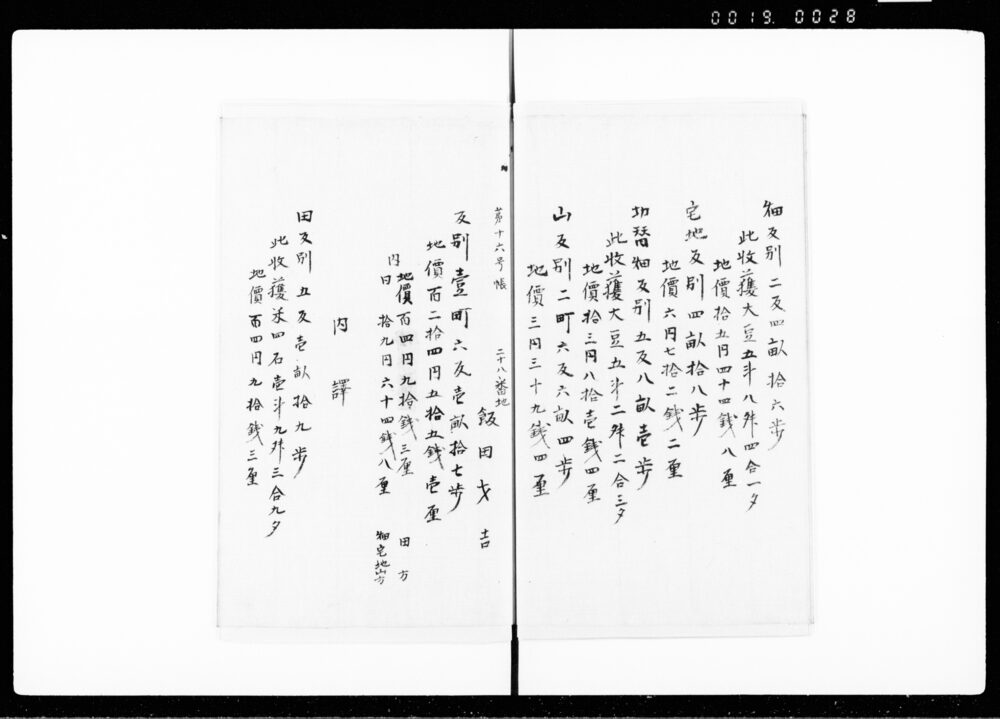 0019. 0028
畑反別二反四畝拾六歩
此收獲大豆五斗八舛四合一夕
地價拾五円四十四銭八厘
宅地反別四畝拾八歩
地價六円七拾二銭二厘
切替畑反別五反八畝壱歩
此收獲大豆五斗二舛二合三夕
地價拾三円八拾壱銭四厘
山反別二町六反六畝四歩
地價三円三十九銭四厘
第十六号帳
二十八番地
飯田才吉
反別壹町六反壱畝拾七歩
地價百二拾四円五拾五銭壱厘
内 地價百四円九拾銭三厘 田方
日拾九円六十四銭八厘 畑宅地山方
内譯
田反別五反壱畝拾九歩
此收獲米四石壱斗九舛三合九夕
地價百四円九拾銭三厘